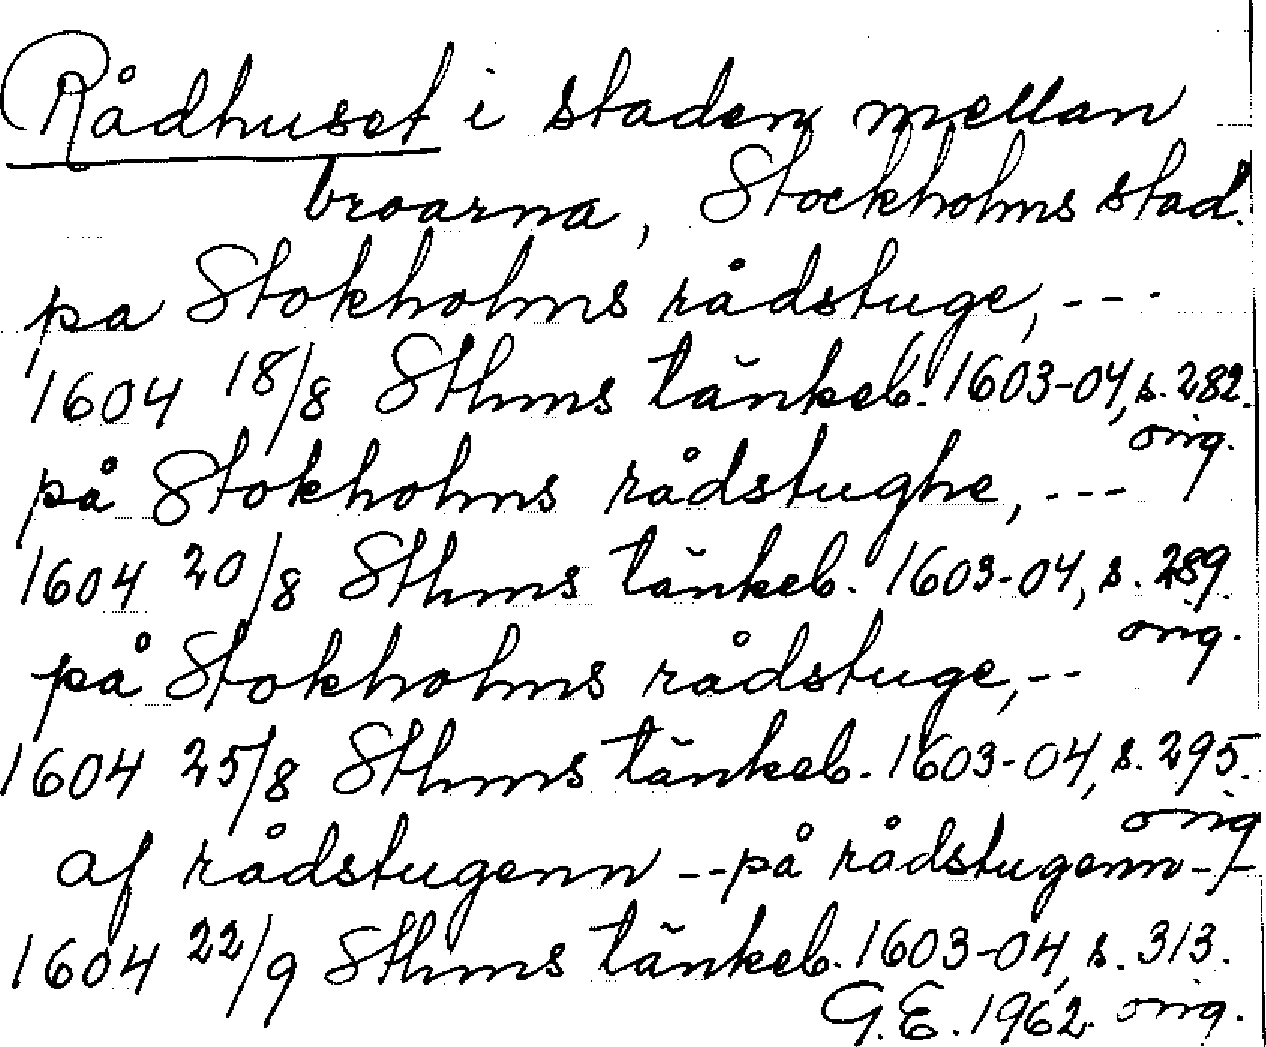 Rådhuset i staden mellan
broarna, Stockholms stad.
pa Stokholms rådstuge, ---
1604 18/8 Sthms tänkeb. 1603-04, s. 282.
orig.
på Stokholms rådstughe, ---
1604 20/8 Sthms tänkeb. 1603-04, s. 289.
orig.
på Stokholms rådstuge, --
1604 25/8 Sthms tänkeb. 1603-04, s. 295.
orig
af rådstugenn -- på rådstugenn --
1604 22/9 Sthms tänkeb. 1603-04, s. 313.
G.E. 1962. orig.